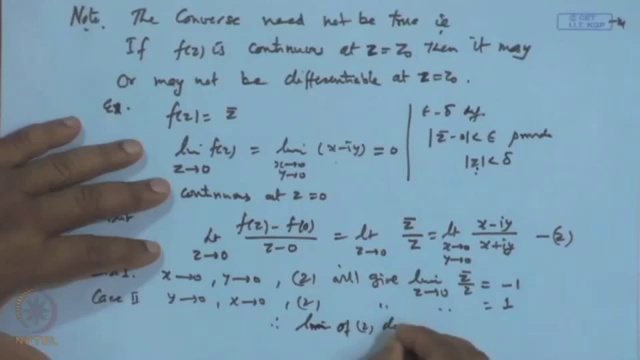 Note. The Converse need not be true ie
© CET
I.I.T. KGP
If f(z) is continuous at z=z₀ then it may
or may not be differentiable at z=z₀.
Ex. f(z) = z̄
lim z→0 f(z) = lim x→0 y→0 (x-iy) = 0
ε-δ def.
|z̄-0|<ε provided
|z|<δ
continuous at z=0
lt z→0 f(z)-f(0) / z-0 = lt z→0 z̄/z = lt x→0 y→0 x-iy / x+iy —(2)
x→0, y→0, (2) will give lim z→0 z̄/z = -1
Case II y→0, x→0, (2) " " = 1
∴ lim of (2) d
NPTEL